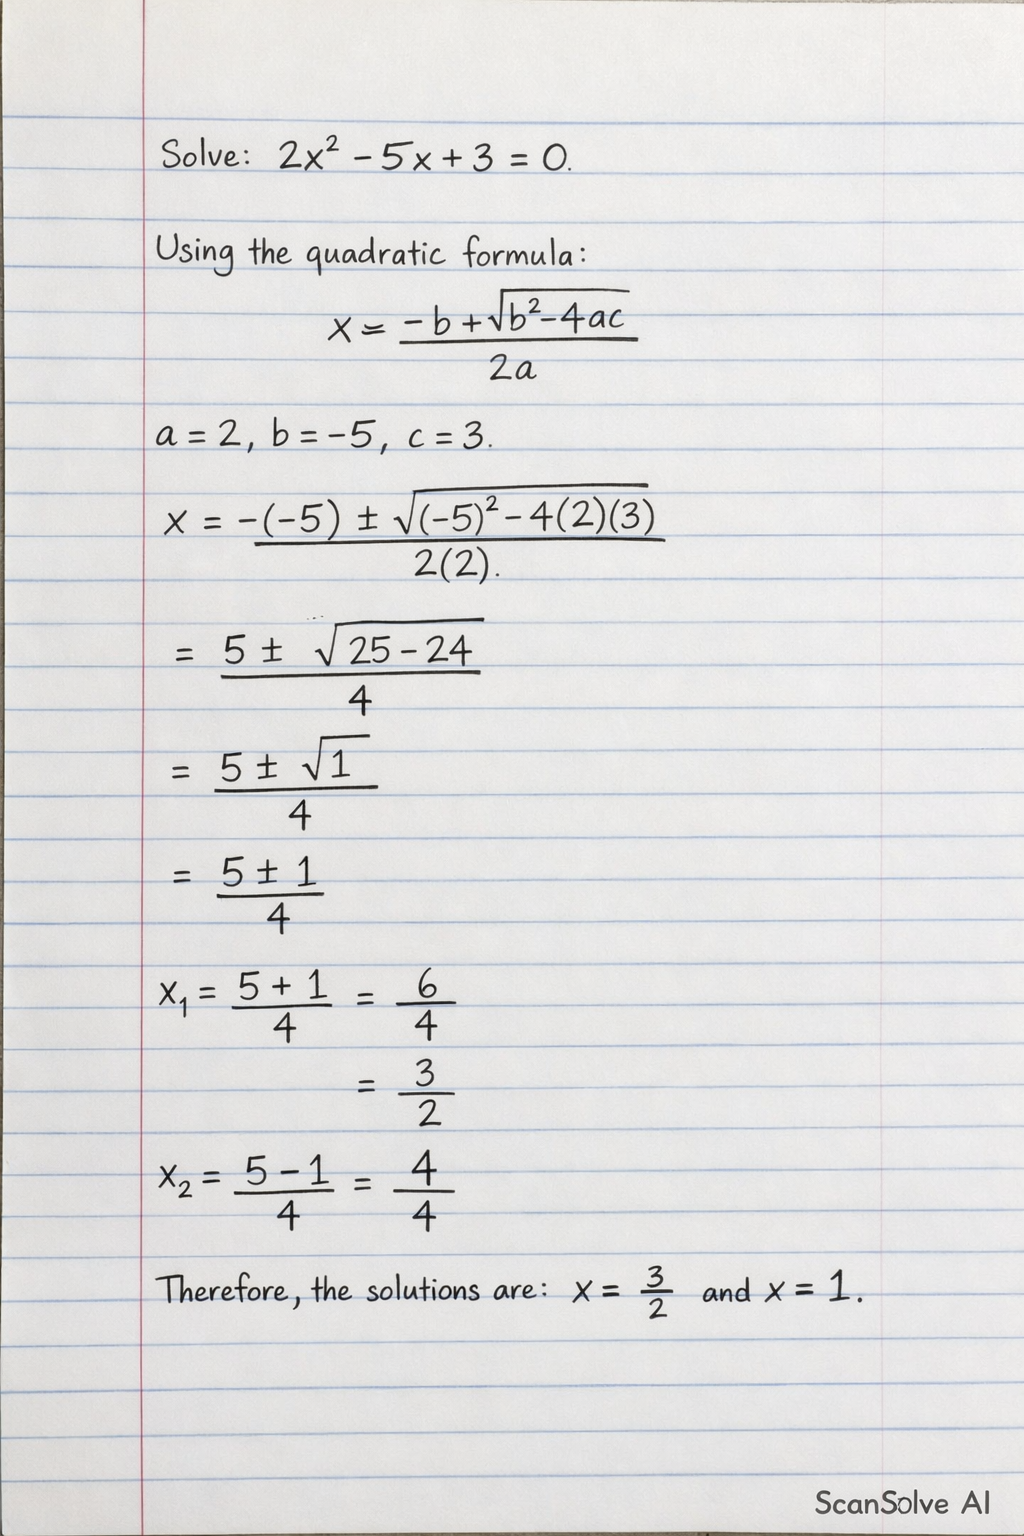 Solve: 2x² - 5x + 3 = 0.
Using the quadratic formula:
x = (-b + √(b² - 4ac)) / 2a
a = 2, b = -5, c = 3.
x = (-(-5) ± √((-5)² - 4(2)(3))) / 2(2).
= (5 ± √(25 - 24)) / 4
= (5 ± √1) / 4
= (5 ± 1) / 4
x₁ = (5 + 1) / 4 = 6/4
= 3/2
x₂ = (5 - 1) / 4 = 4/4
Therefore, the solutions are: x = 3/2 and x = 1.
ScanSolve AI